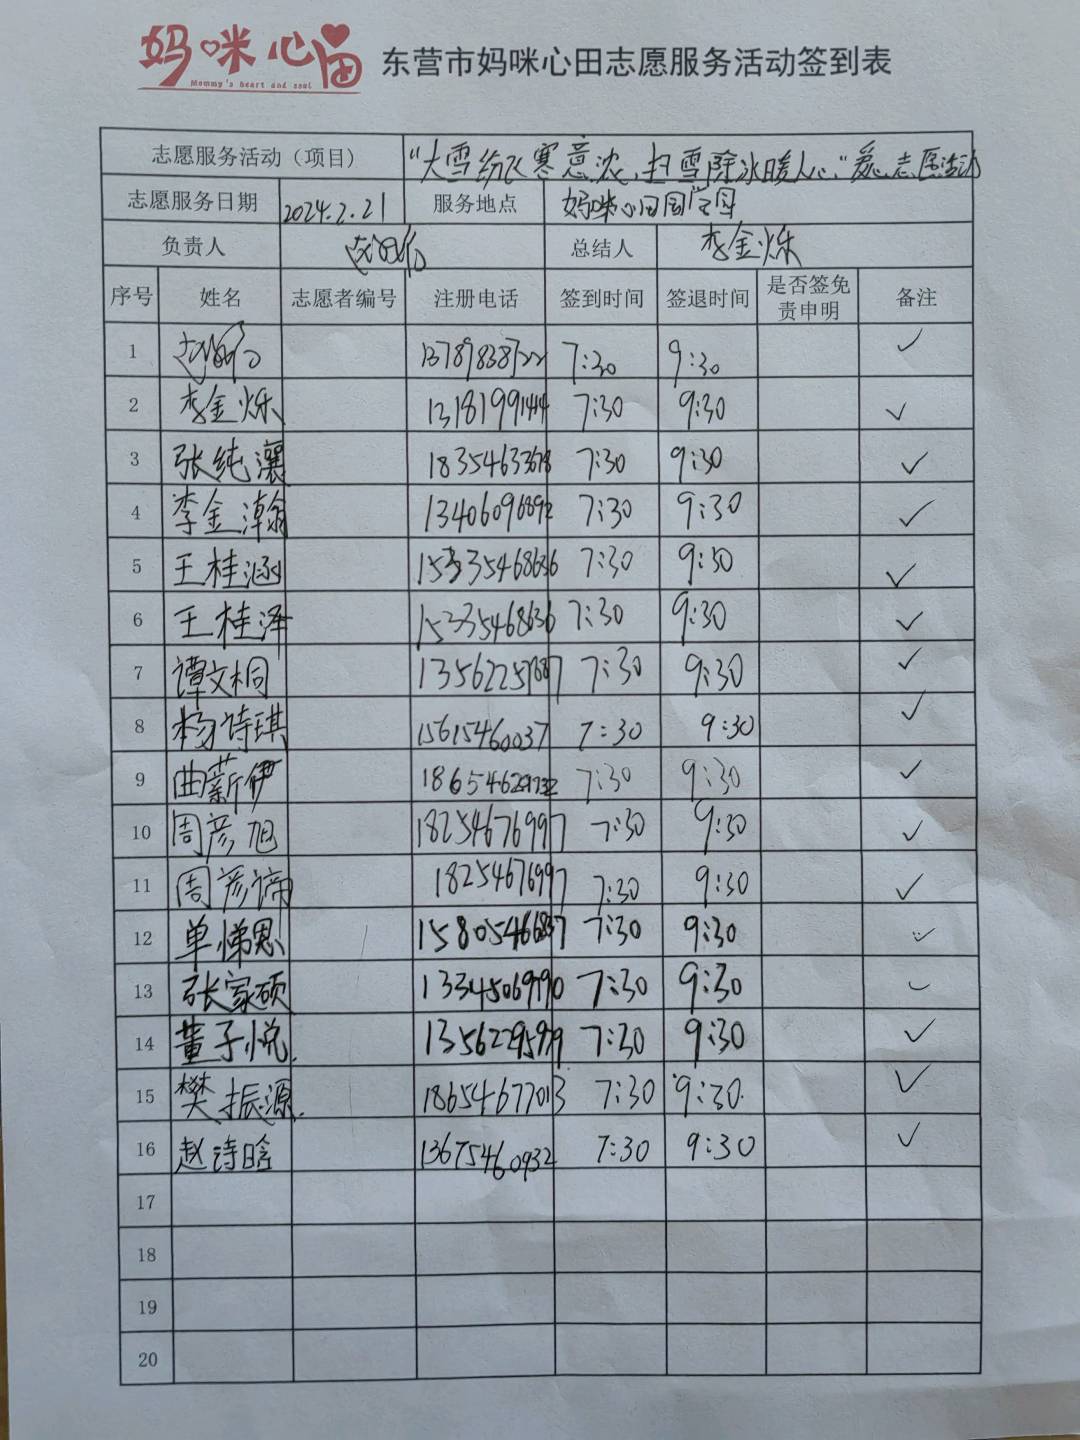 妈咪心田
Mommy's heart and soul
东营市妈咪心田志愿服务活动签到表
志愿服务活动（项目） "大雪纷飞寒意浓，扫雪除冰暖人心"爱心志愿活动
志愿服务日期 2024.2.21 服务地点 妈咪心田
负责人 总结人 李金烁
序号 姓名 志愿者编号 注册电话 签到时间 签退时间 是否签免责申明 备注
1 7:30 9:30 ✓
2 李金烁 7:30 9:30 ✓
3 张纯瀼 7:30 9:30 ✓
4 李金瀚 13406096892 7:30 9:30 ✓
5 王桂涵 15335468636 7:30 9:30 ✓
6 王桂泽 15335468636 7:30 9:30 ✓
7 谭文桐 7:30 9:30 ✓
8 杨诗琪 15615460037 7:30 9:30 ✓
9 曲薪伊 7:30 9:30 ✓
10 周彦旭 18254676997 7:30 9:30 ✓
11 周彦谛 18254676997 7:30 9:30 ✓
12 单悌恩 7:30 9:30 ✓
13 张家硕 7:30 9:30 ✓
14 董子悦 7:30 9:30 ✓
15 樊振源 18654677013 7:30 9:30 ✓
16 赵诗晗 13675460932 7:30 9:30 ✓
17
18
19
20